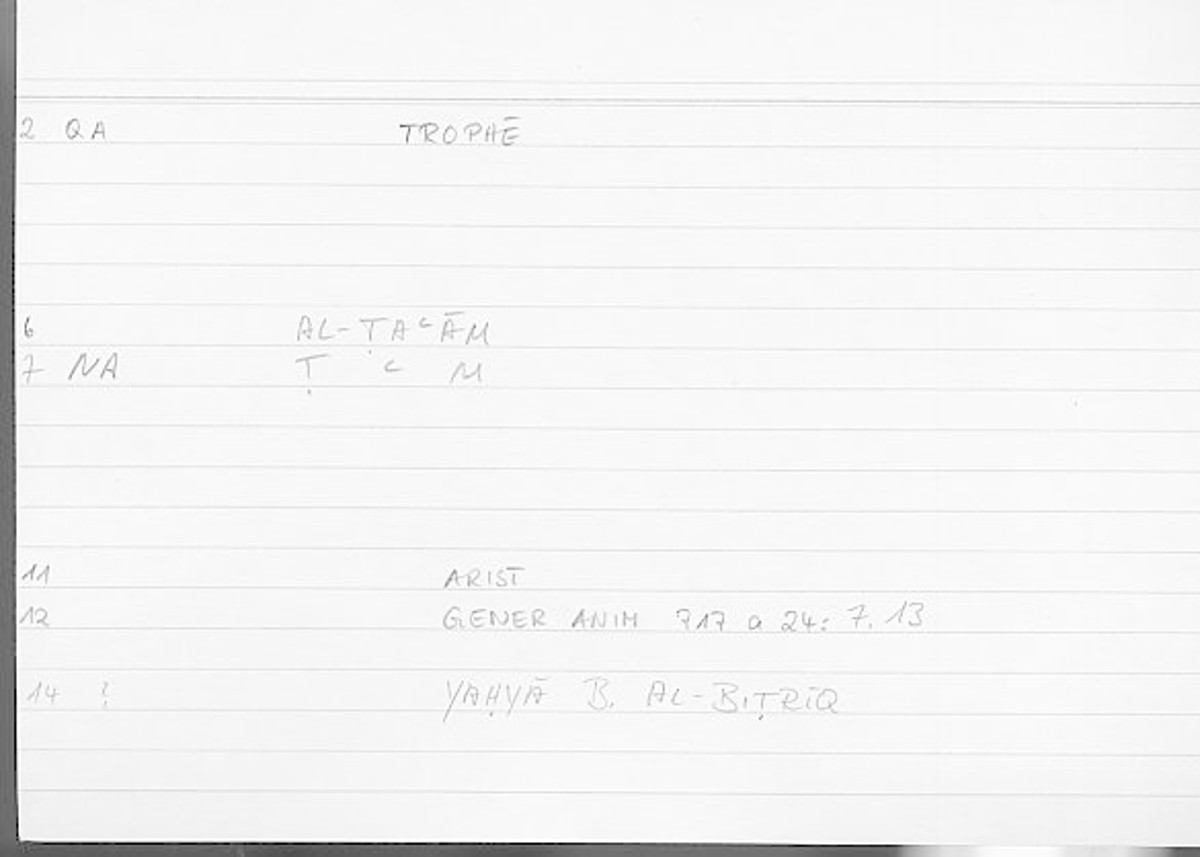 2 QA TROPHĒ
6 AL-ṬAʿĀM
7 NA Ṭ ʿ M
11 ARIST
12 GENER ANIM 717 a 24: 7.13
14 ? YAḤYĀ B. AL-BIṬRĪQ